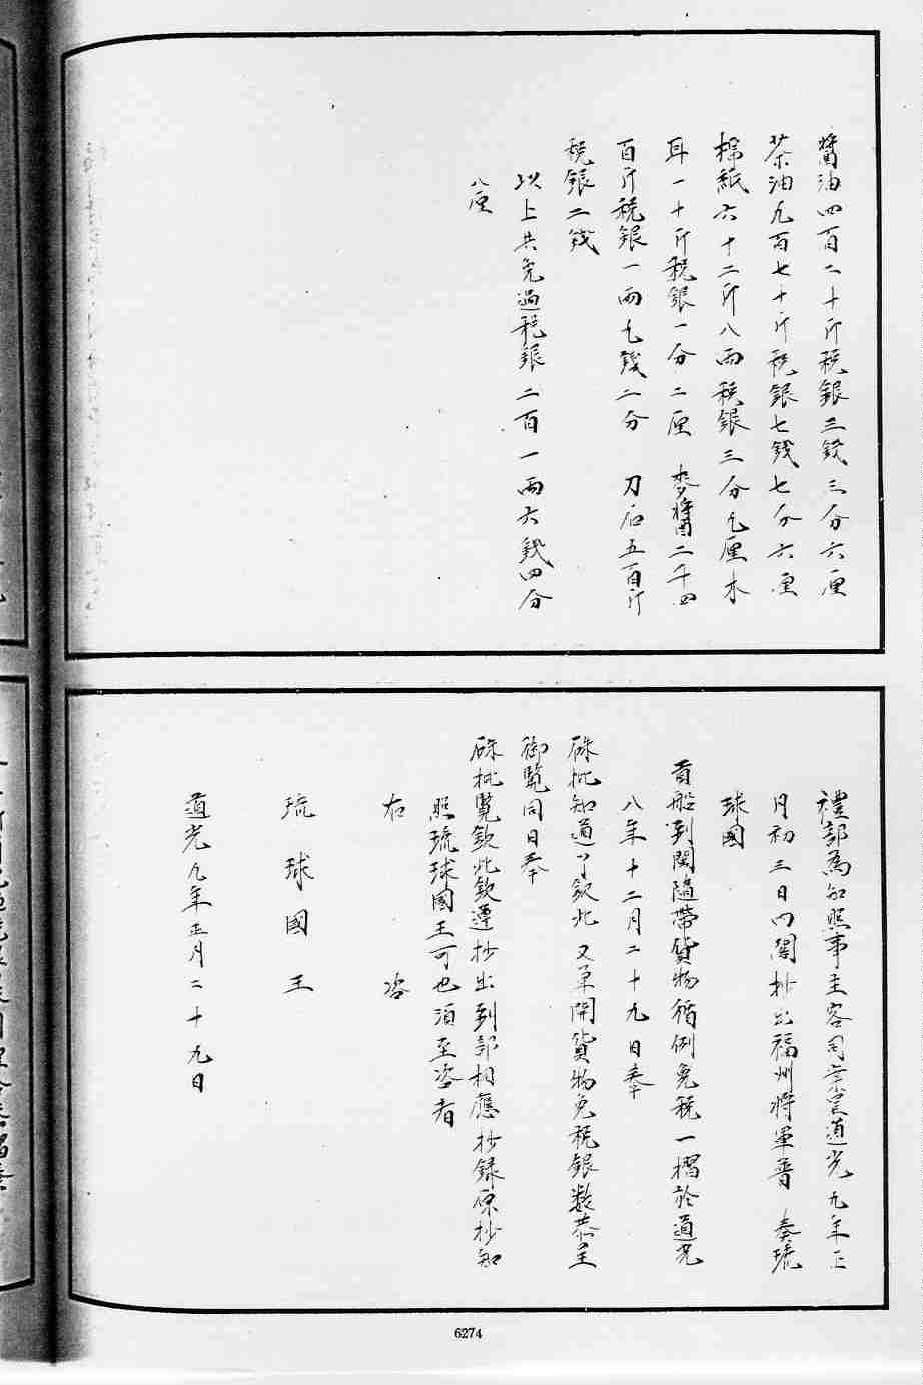 醬油四百二十斤稅銀三錢三分六厘
茶油九百七十斤稅銀七錢七分六厘
棉紙六十二斤八兩稅銀三分九厘木
耳一十斤稅銀一分二厘 麥醬二千四
百斤稅銀一兩九錢二分 刀石五百斤
稅銀二錢
以上共免過稅銀二百一兩六錢四分
八厘
禮部為知照事主客司案呈道光九年正
月初三日內閣抄出福州將軍 奏琉
球國
貢船到閩隨帶貨物循例免稅一摺於道光
八年十二月二十九日奉
硃批知道了欽此又單開貨物免稅銀數恭呈
御覽同日奉
硃批覽欽此欽遵抄出到部相應抄錄原抄知
照琉球國王可也須至咨者
右 咨
琉球國王
道光九年正月二十九日
6274